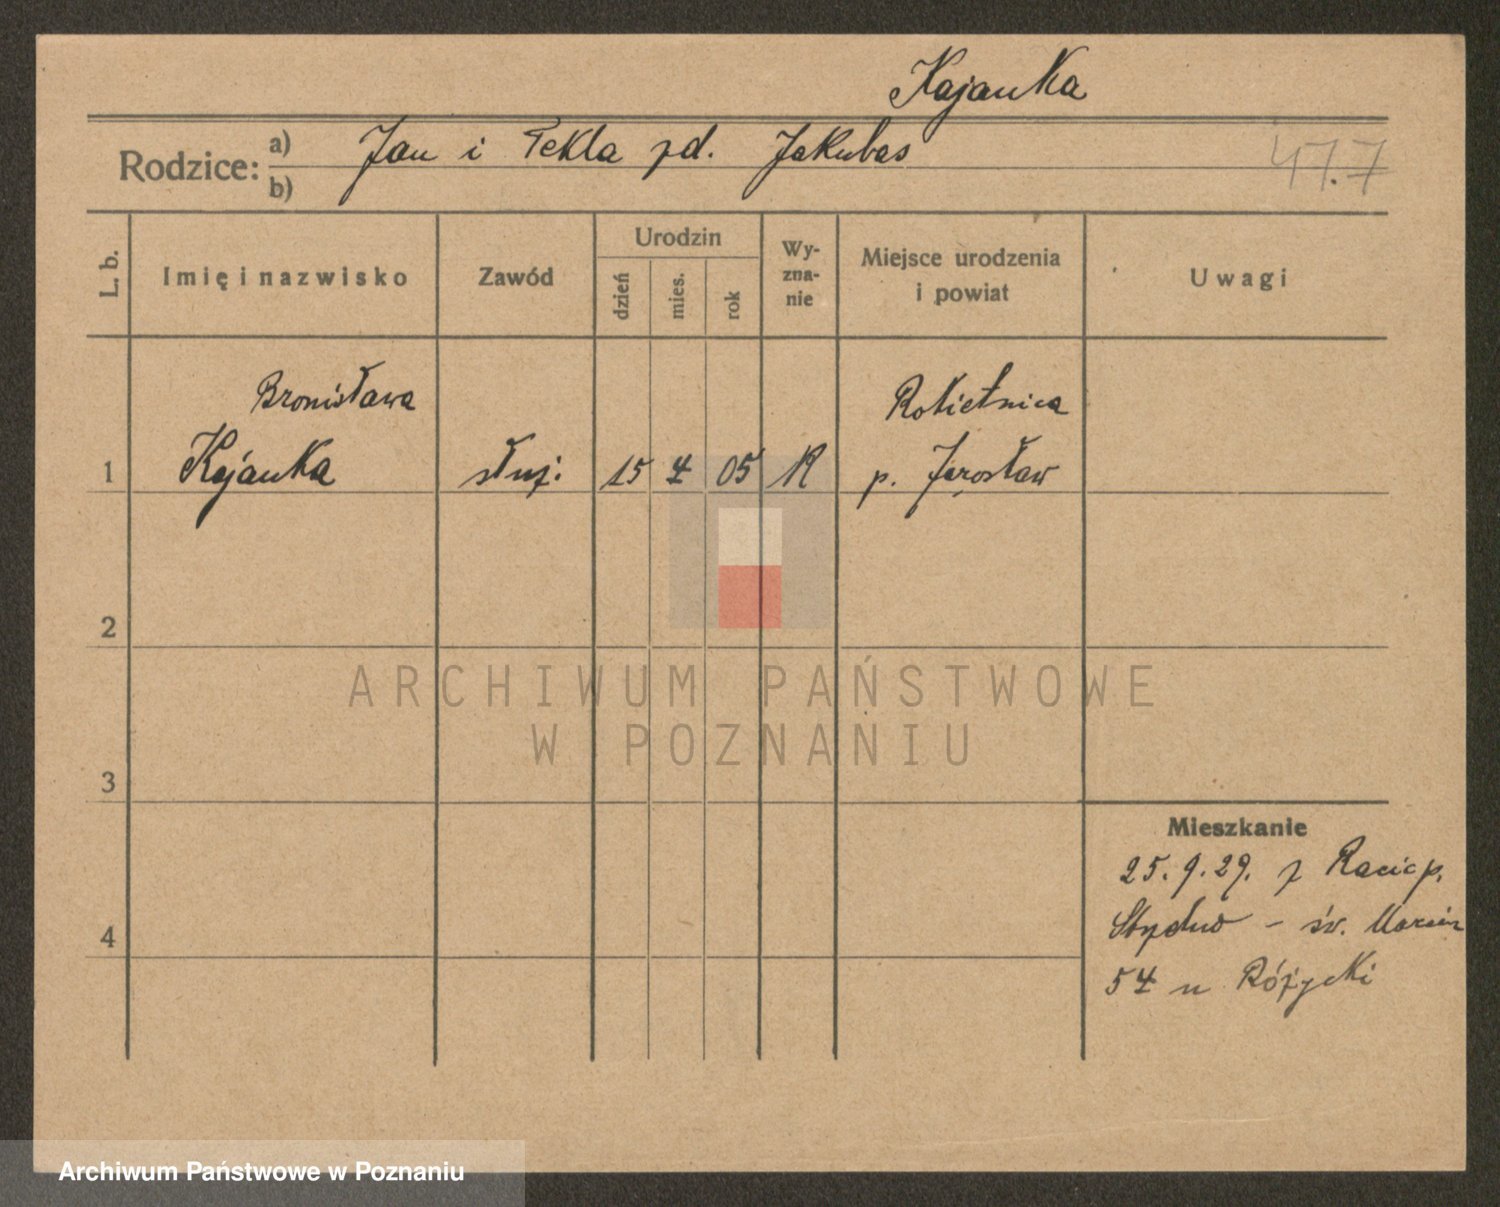 Kajanka
Rodzice: a) Jan i Tekla zd. Jakubas
b)
47.7
L. b.
Imię i nazwisko
Zawód
Urodzin
dzień
mies.
rok
Wy-
zna-
nie
Miejsce urodzenia
i powiat
Uwagi
Bronisława
Rokietnica
1 Kajanka służ. 15 4 05 R p. Jarosław
2
ARCHIWUM PAŃSTWOWE
W POZNANIU
3
Mieszkanie
25.9.29. z
4
– św. Marcin
54 u Różycki
Archiwum Państwowe w Poznaniu